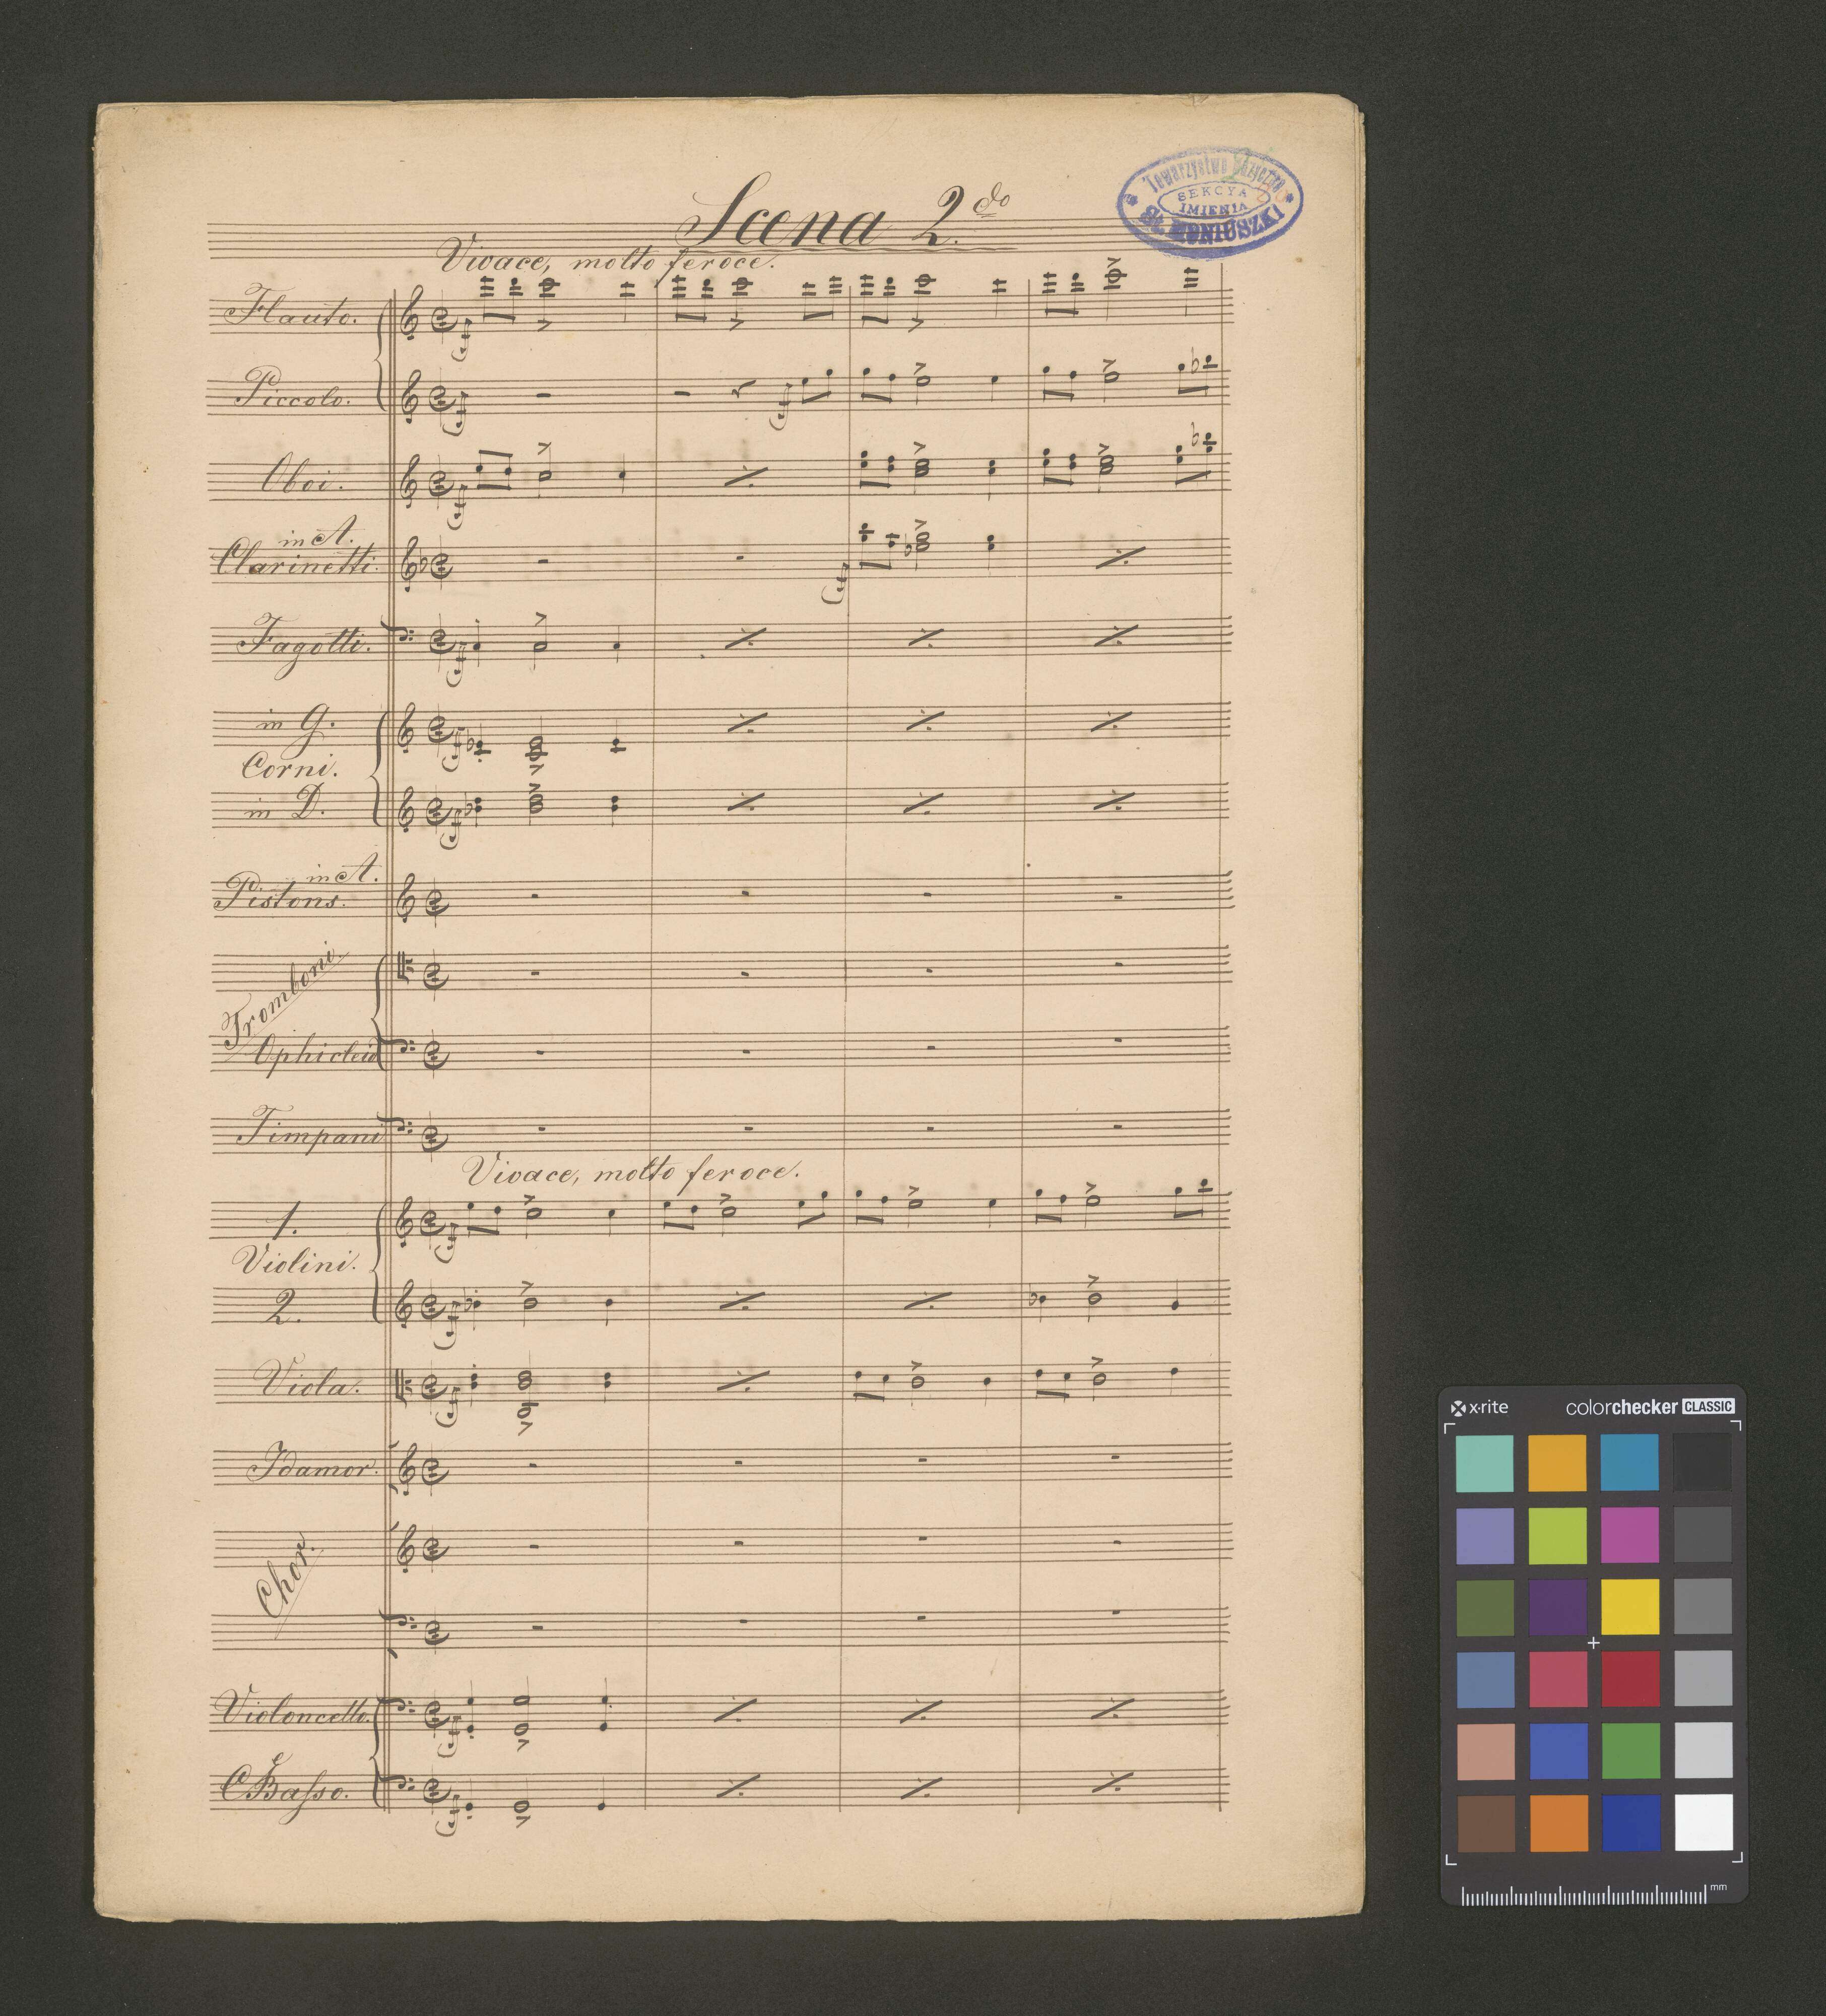 Scena 2.do
Towarzystwo Muzyczne
SEKCYA
IMIENIA
St. MONIUSZKI
Vivace, molto feroce.
Flauto.
Piccolo.
Oboi.
in A.
Clarinetti.
Fagotti.
in G.
Corni.
in D.
in A.
Pistons.
Tromboni.
Ophicleid
Timpani
Vivace, molto feroce.
1.
Violini.
2.
Viola.
Idamor.
Chor.
Violoncello.
C Basso.
x·rite colorchecker CLASSIC
mm